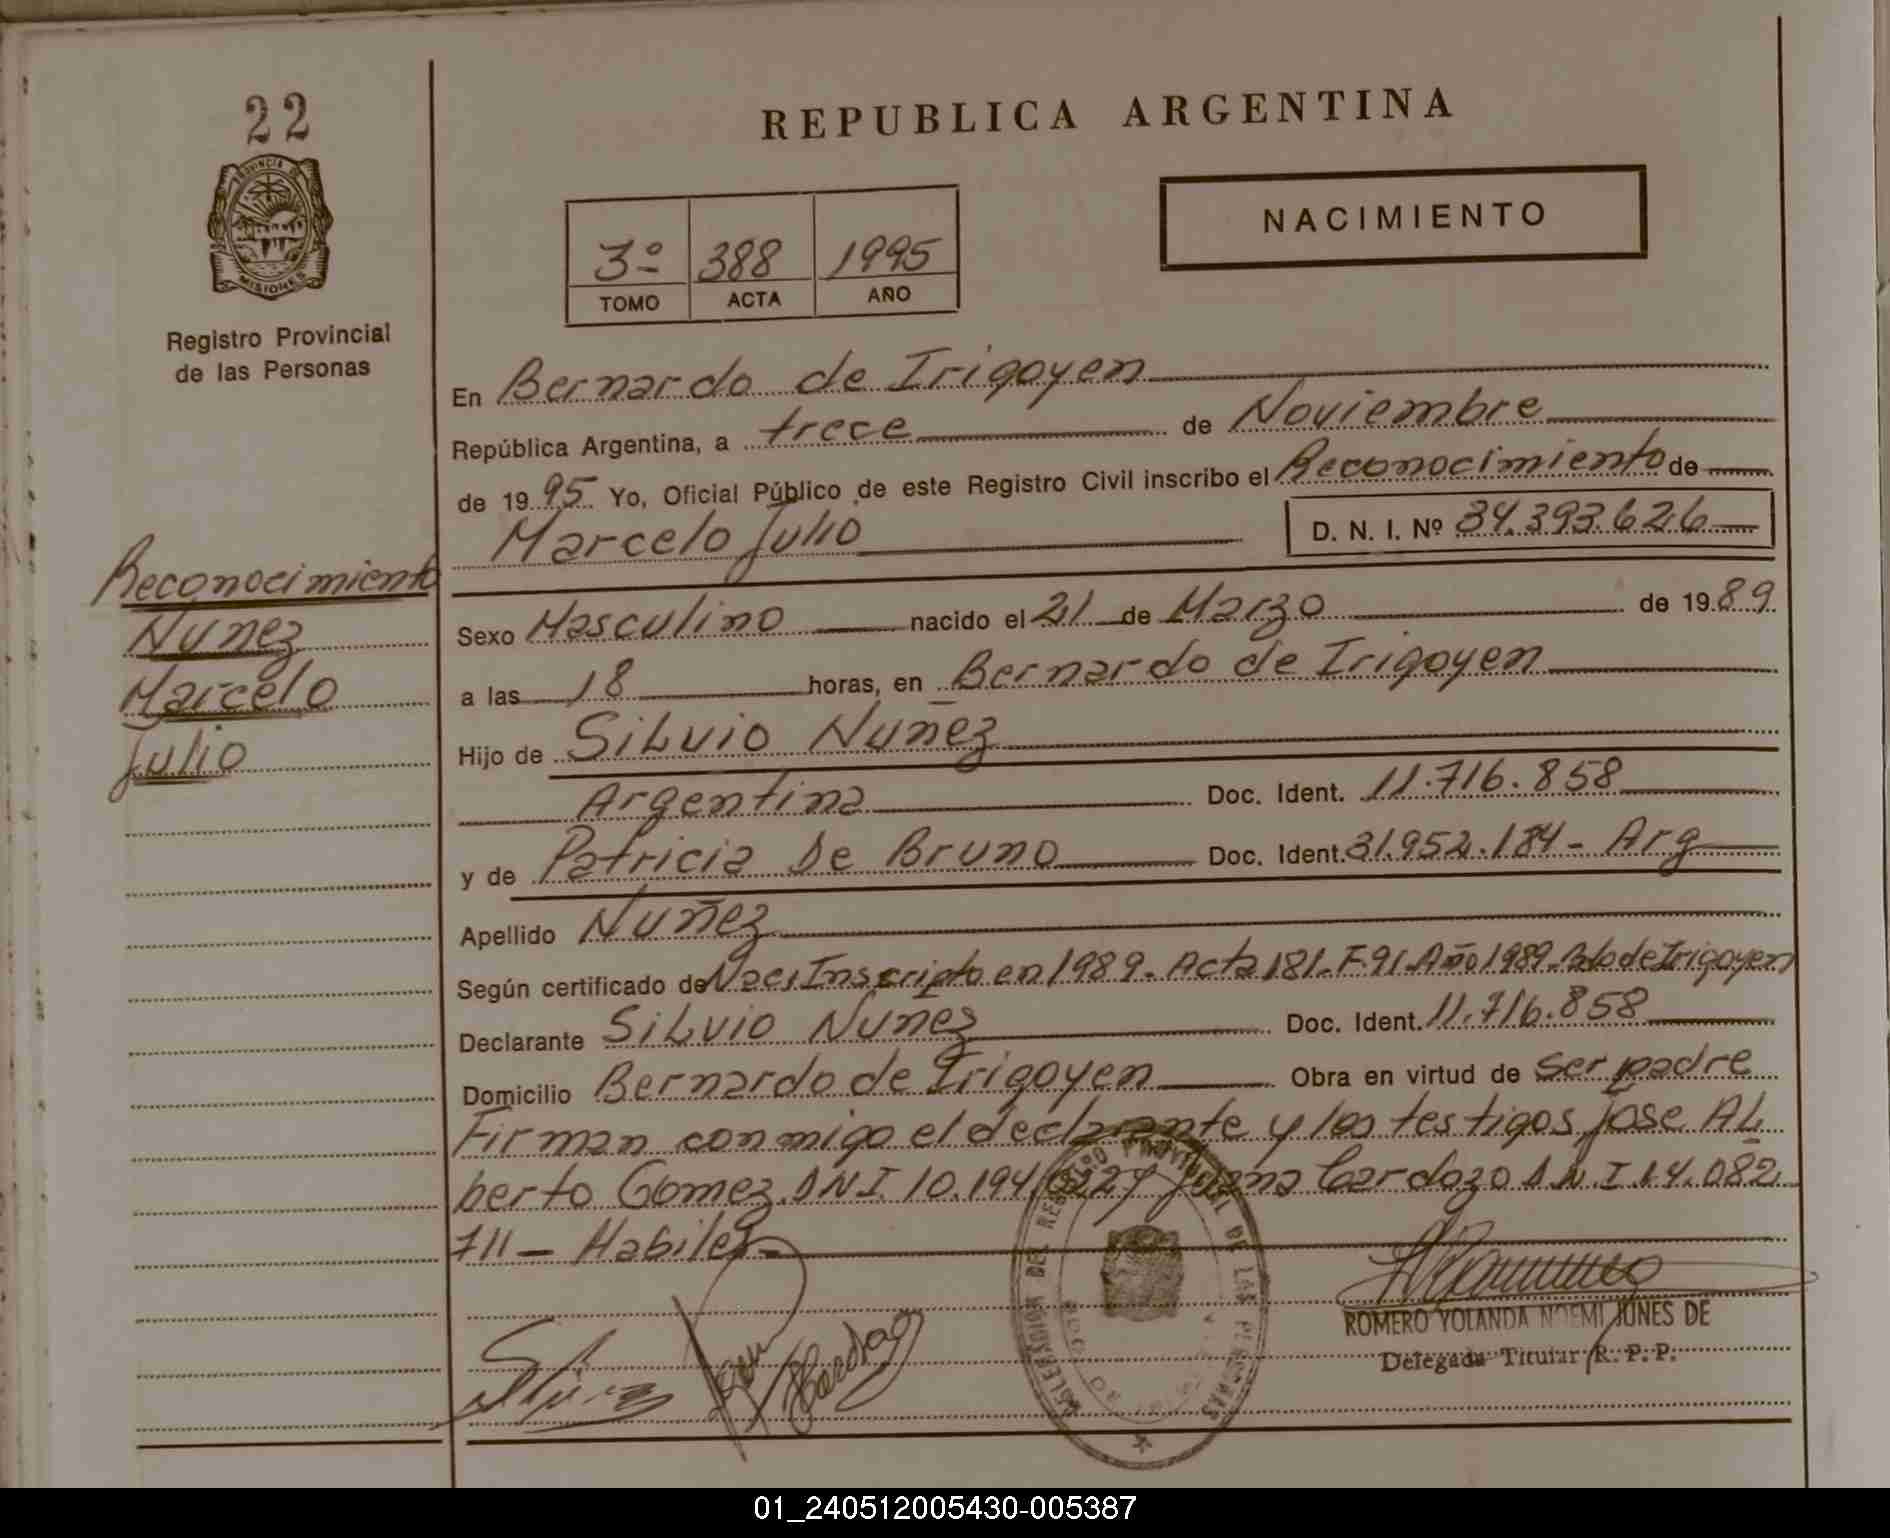 22
PROVINCIA DE
MISIONES
Registro Provincial
de las Personas
REPUBLICA ARGENTINA
3º 388 1995
TOMO ACTA AÑO
NACIMIENTO
En Bernardo de Irigoyen
República Argentina, a trece de Noviembre
de 1995 Yo, Oficial Público de este Registro Civil inscribo el Reconocimiento de
Marcelo Julio D. N. I. Nº 34.393.626
Reconocimiento
Nuñez
Marcelo
Julio
Sexo Masculino nacido el 21 de Marzo de 1989
a las 18 horas, en Bernardo de Irigoyen
Hijo de Silvio Nuñez
Argentina Doc. Ident. 11.716.858
y de Patricia De Bruno Doc. Ident. 31.952.184 - Arg
Apellido Nuñez
Según certificado de Nac. Inscripto en 1989. Acta 181. F. 91. Año 1989. Bdo de Irigoyen
Declarante Silvio Nuñez Doc. Ident. 11.716.858
Domicilio Bernardo de Irigoyen Obra en virtud de ser padre
Firman conmigo el declarante y los testigos Jose Al
berto Gomez DNI 10.194. Juana Cardozo D.N.I 14.082
711 - Habiles
ROMERO YOLANDA NOEMI JUNES DE
Delegada Titular R. P. P.
01_240512005430-005387